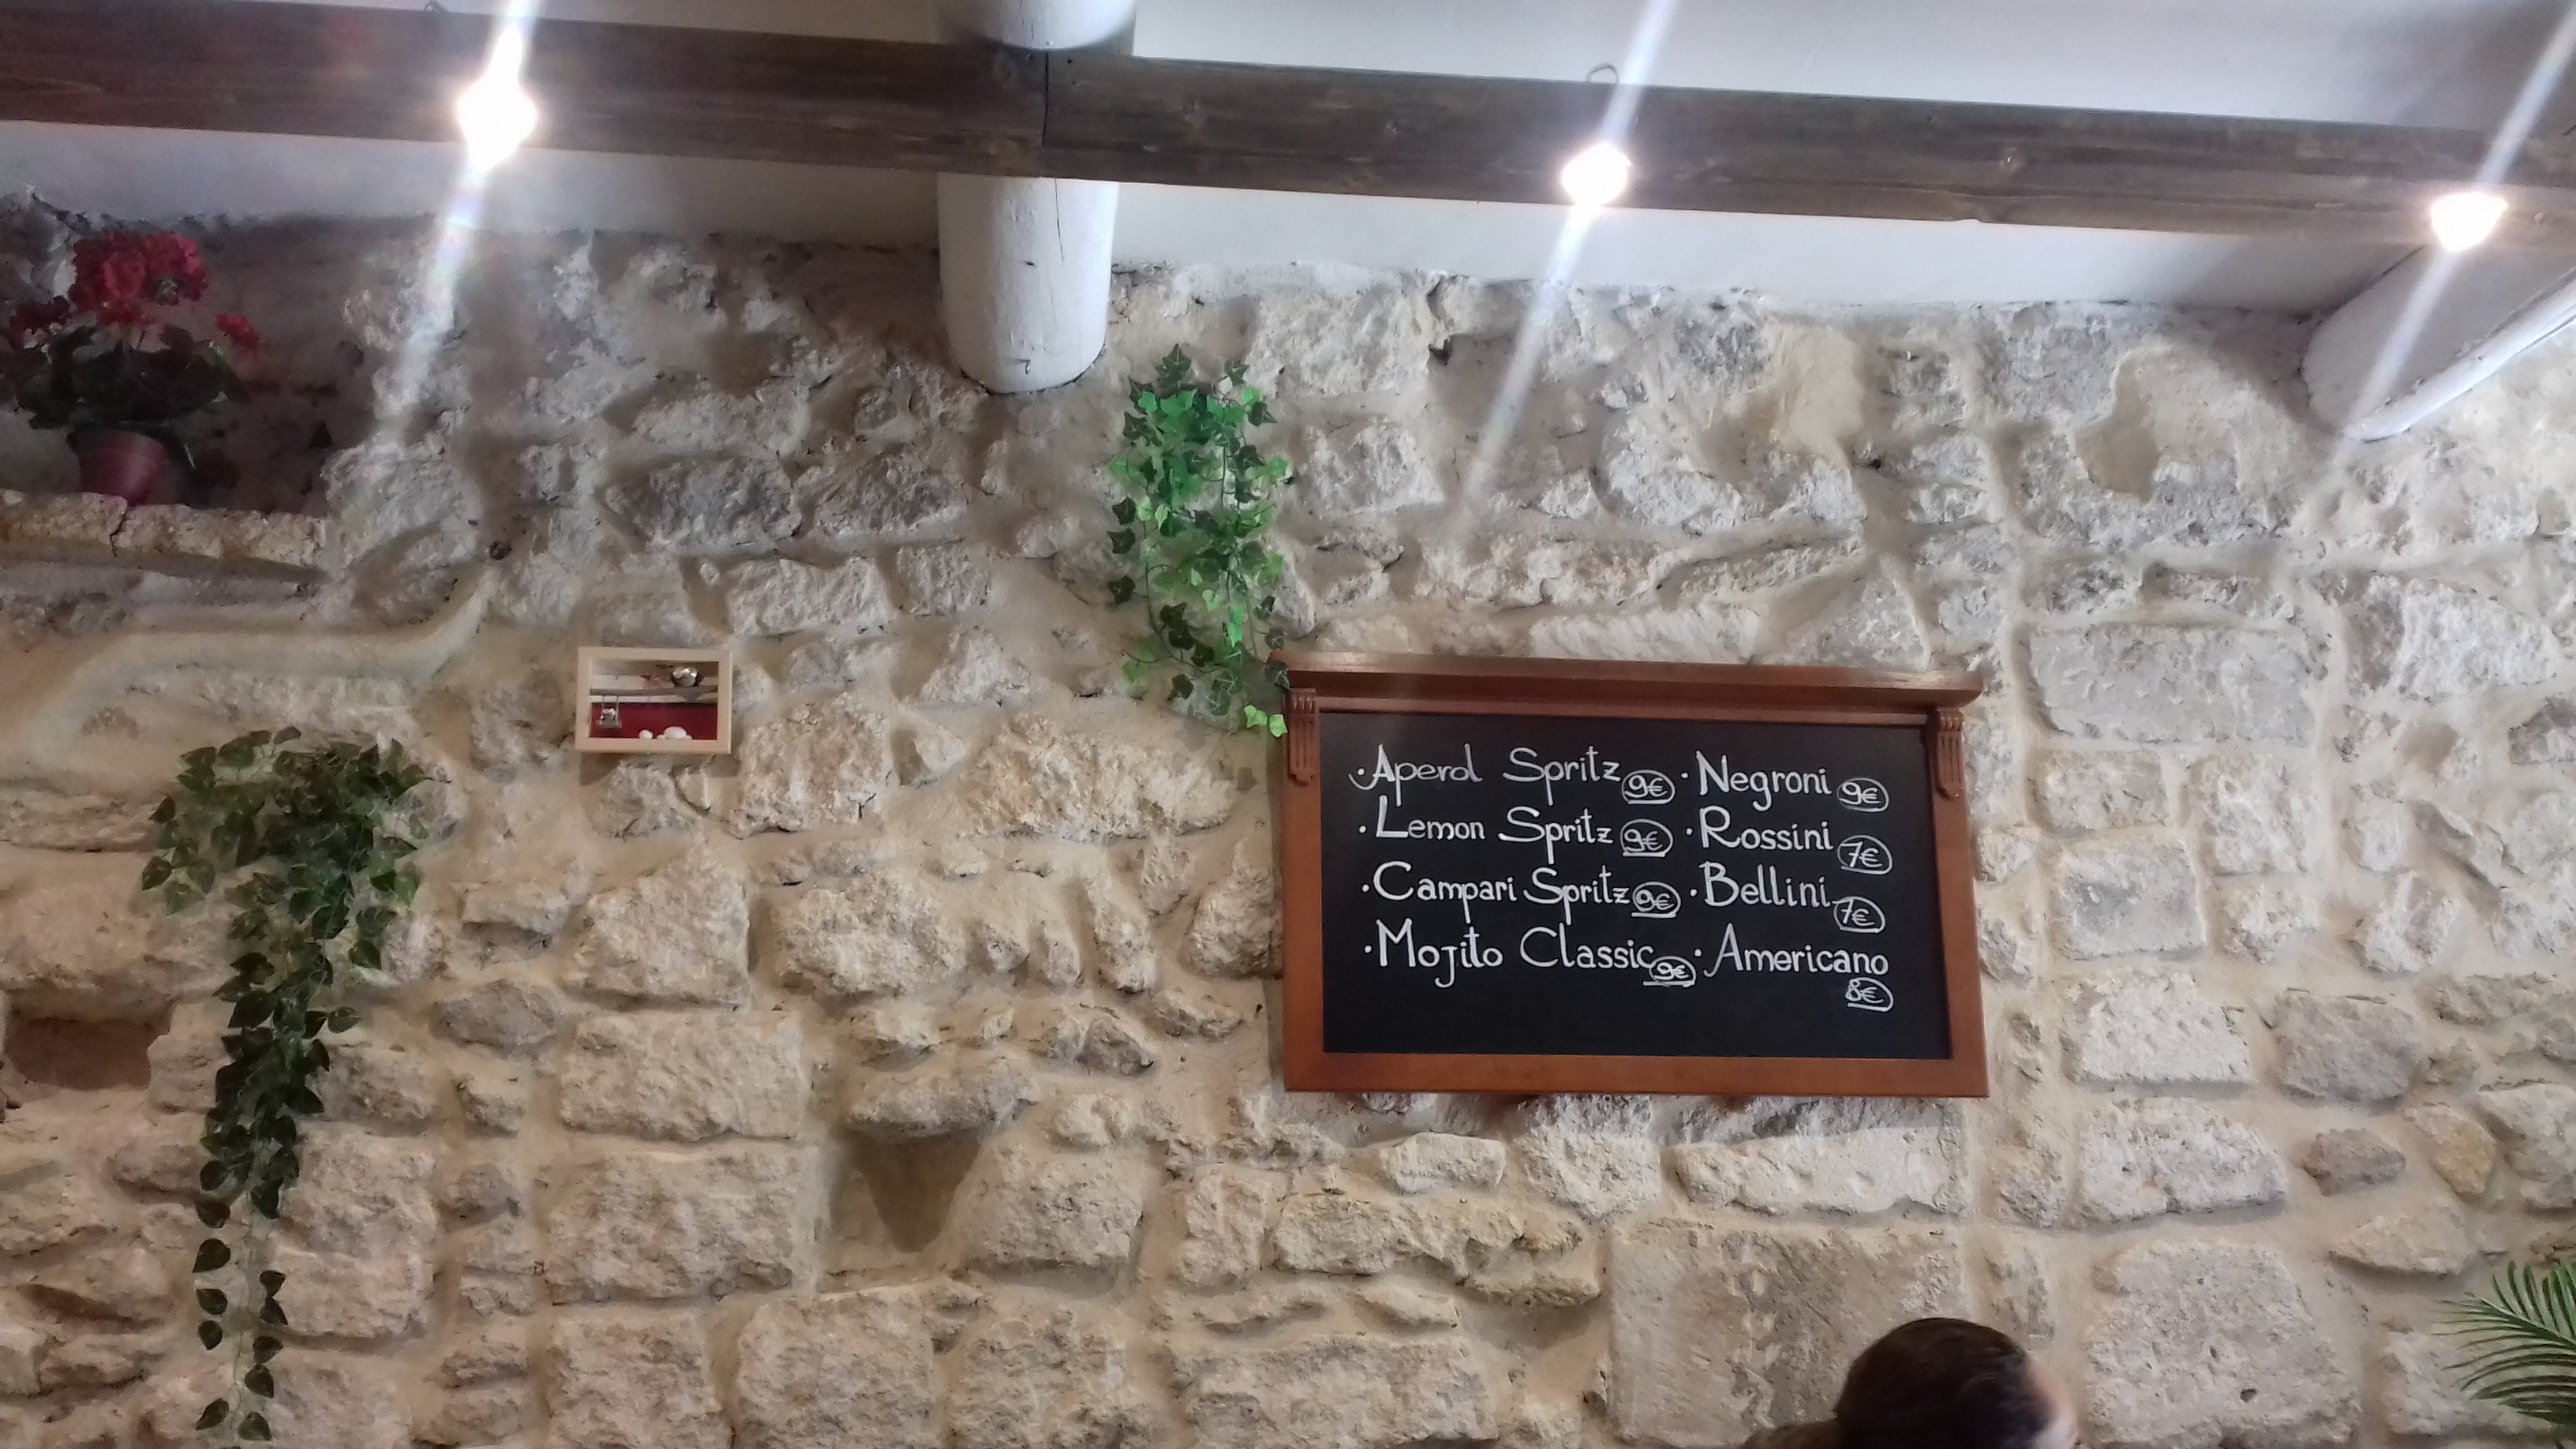 ·Aperol Spritz 9€ ·Negroni 9€
·Lemon Spritz 9€ ·Rossini 7€
·Campari Spritz 9€ ·Bellini 7€
·Mojito Classic 9€ ·Americano
8€